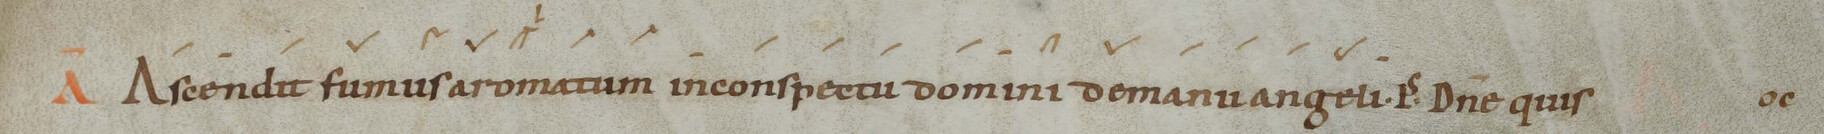 A Ascendit fumus aromatum inconspectu domini demanu angeli. Ps. Dne quis oc